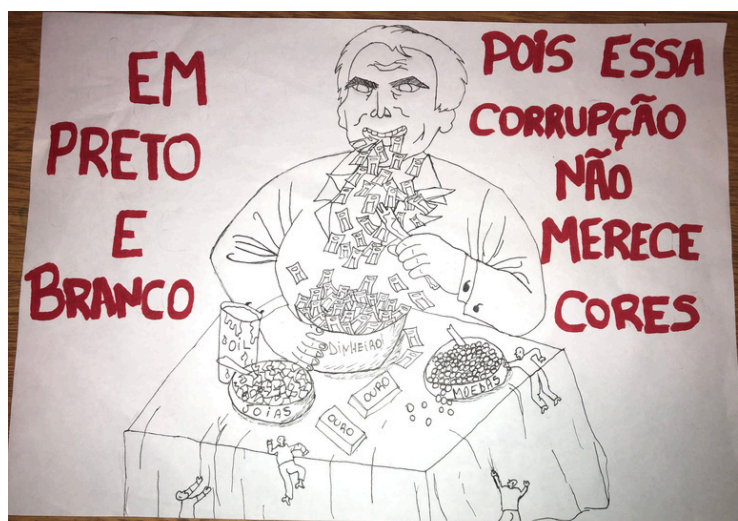 EM
PRETO
E
BRANCO
POIS ESSA
CORRUPÇÃO
NÃO
MERECE
CORES
DINHEIRO
OIL
JOIAS
OURO
OURO
MOEDAS